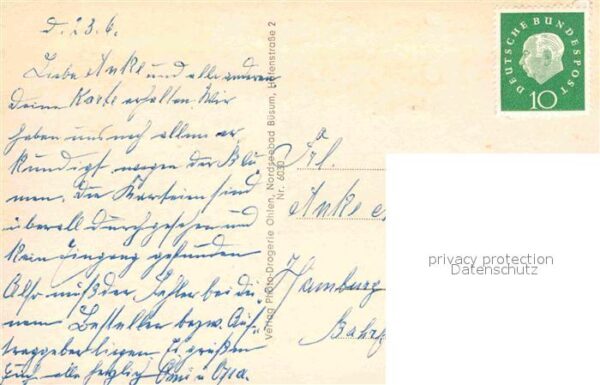 D. 23. 6.
Liebe Anke und alle anderen
Deine Karte erhalten. Wir
haben uns nach allem er
kundigt wegen der Blu
men. Die Karteien sind
überall durchgesehen und
kein Eingang gefunden
Also muß der Fehler bei dei
nem Besteller bezw. Auf
traggeber liegen. Es grüßen
Euch alle herzlich Omi u Opa.
Verlag Photo-Drogerie Ohlen, Nordseebad Büsum, Hafenstraße 2
Nr. 6030
DEUTSCHE BUNDESPOST
10
Frl.
Anke
Hamburg
privacy protection
Datenschutz